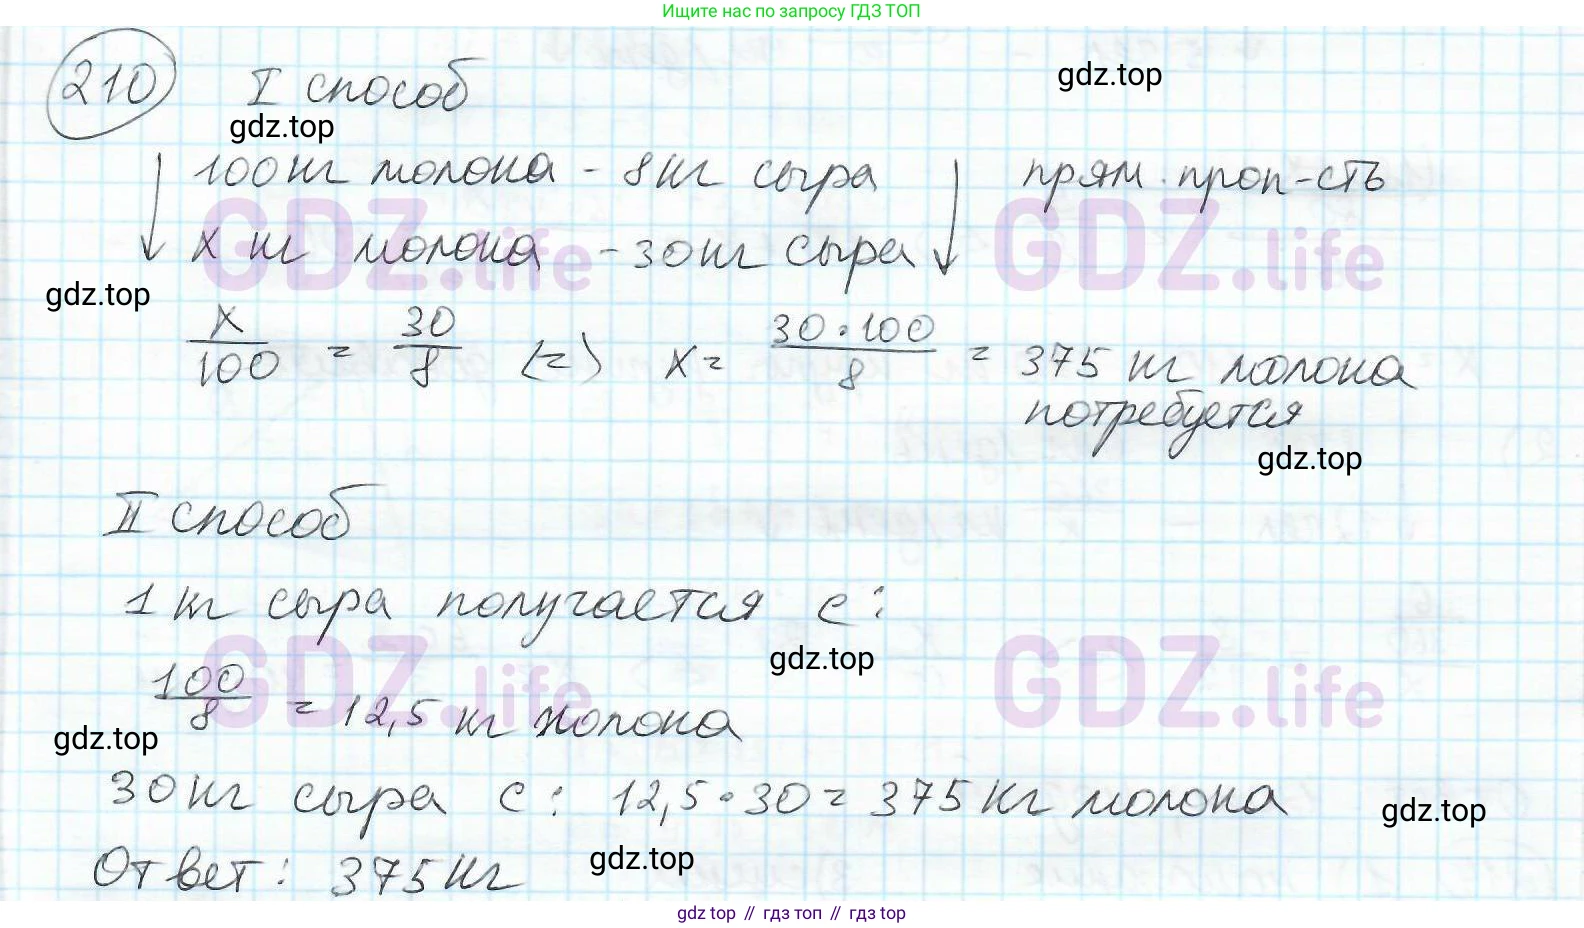 Ищите нас по запросу ГДЗ ТОП
210 I способ
gdz.top
gdz.top
100 кг молока - 8 кг сыра прям. проп-сть
GDZ.life GDZ.life
х кг молока - 30 кг сыра
gdz.top
х/100 = 30/8 (=) х = 30·100/8 = 375 кг молока
потребуется
gdz.top
II способ
1 кг сыра получается с:
GDZ.life GDZ.life
gdz.top
100/8 = 12,5 кг молока
gdz.top
30 кг сыра с: 12,5·30 = 375 кг молока
gdz.top
Ответ: 375 кг
gdz.top
gdz top // гдз топ // гдз top